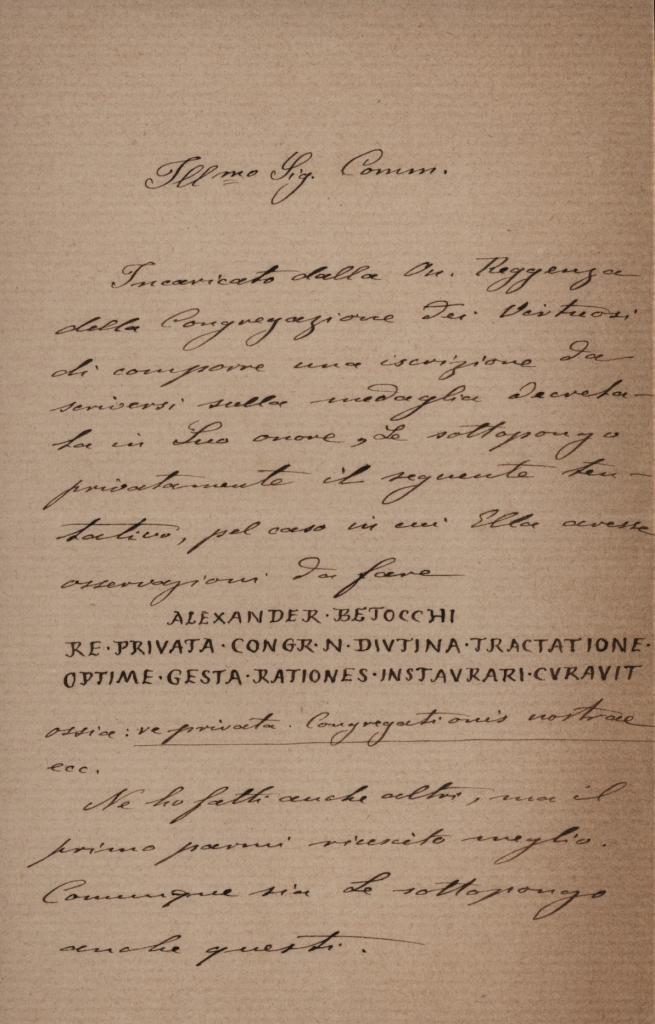 Ill.mo Sig. Comm.
Incaricato dalla On. Reggenza
della Congregazione dei Virtuosi
di comporre una iscrizione da
scriversi sulla medaglia decreta-
ta in Suo onore, Le sottopongo
privatamente il seguente ten-
tativo, pel caso in cui Ella avesse
osservazioni da fare
ALEXANDER·BETOCCHI
RE·PRIVATA·CONGR·N·DIVTINA·TRACTATIONE·
OPTIME·GESTA·RATIONES·INSTAVRARI·CVRAVIT
ossia: re privata. Congregationis nostrae
ecc.
Ne ho fatti anche altri, ma il
primo parmi riuscito meglio.
Comunque sia Le sottopongo
anche questi.